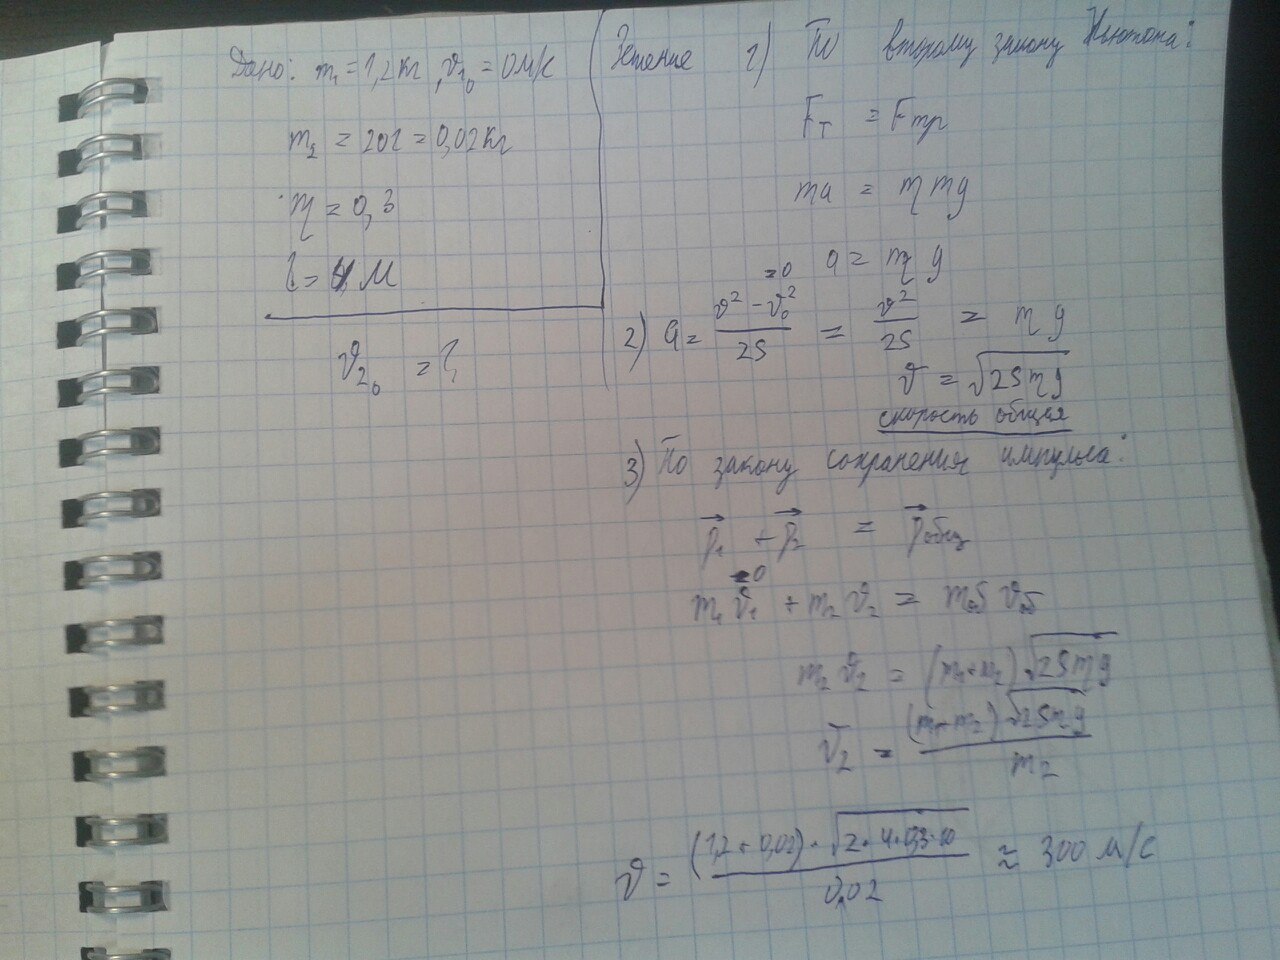 Дано: m₁ = 1,2 кг, ϑ₁₀ = 0 м/с
m₂ = 20 г = 0,02 кг
η = 0,3
l = 4 м
ϑ₂₀ = ?
Решение 1) По второму закону Ньютона:
Fт = Fтр
ma = ηmg
a = ηg
2) a = (ϑ² - ϑ₀²)/2S = ϑ²/2S = ηg
=0
ϑ = √2Sηg
скорость общая
3) По закону сохранения импульса:
p₁ + p₂ = pобщ
=0
m₁ϑ₁ + m₂ϑ₂ = mобϑоб
m₂ϑ₂ = (m₁+m₂)√2Sηg
ϑ₂ = (m₁+m₂)√2Sηg / m₂
ϑ = (1,2 + 0,02) · √2·4·0,3·10 / 0,02 ≈ 300 м/с